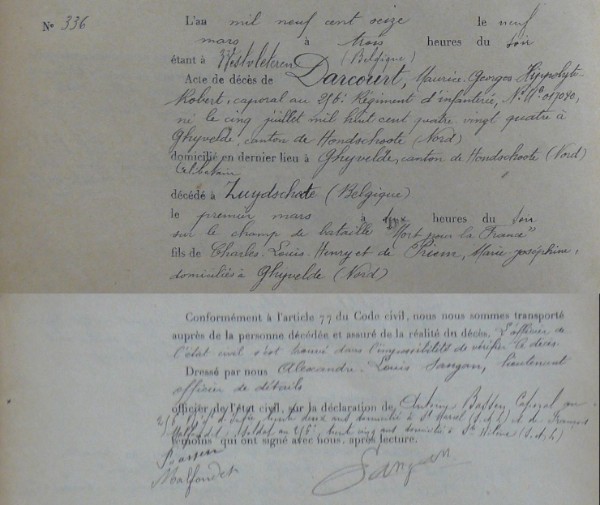 N° 336
L'an mil neuf cent seize le neuf
mars à trois heures du soir
étant à Westvleteren (Belgique)
Acte de décès de Darcourt, Maurice-Georges-Hippolyte-
Robert, caporal au 256e Régiment d'infanterie, N° Mle 017040,
né le cinq juillet mil huit cent quatre vingt quatre à
Ghyvelde, canton de Hondschoote (Nord)
domicilié en dernier lieu à Ghyvelde, canton de Hondschoote (Nord)
Célibataire
décédé à Zuydschote (Belgique)
le premier mars à deux heures du soir
sur le champ de bataille "Mort pour la France"
fils de Charles-Louis-Henry et de Priem, Marie-Joséphine,
domiciliés à Ghyvelde (Nord)
Conformément à l'article 77 du Code civil, nous nous sommes transporté
auprès de la personne décédée et assuré de la réalité du décès. L'officier de
l'état civil s'est trouvé dans l'impossibilité de vérifier le décès
Dressé par nous Alexandre-Louis Sangan, lieutenant
officier de détails
officier de l'état civil, sur la déclaration de Basson Caporal au
trente deux ans domicilié à (S. et L.) et de François
soldat au 256e, trente cinq ans domicilié à Ste Hélène (S. et L.)
témoins qui ont signé avec nous, après lecture.
Sangan